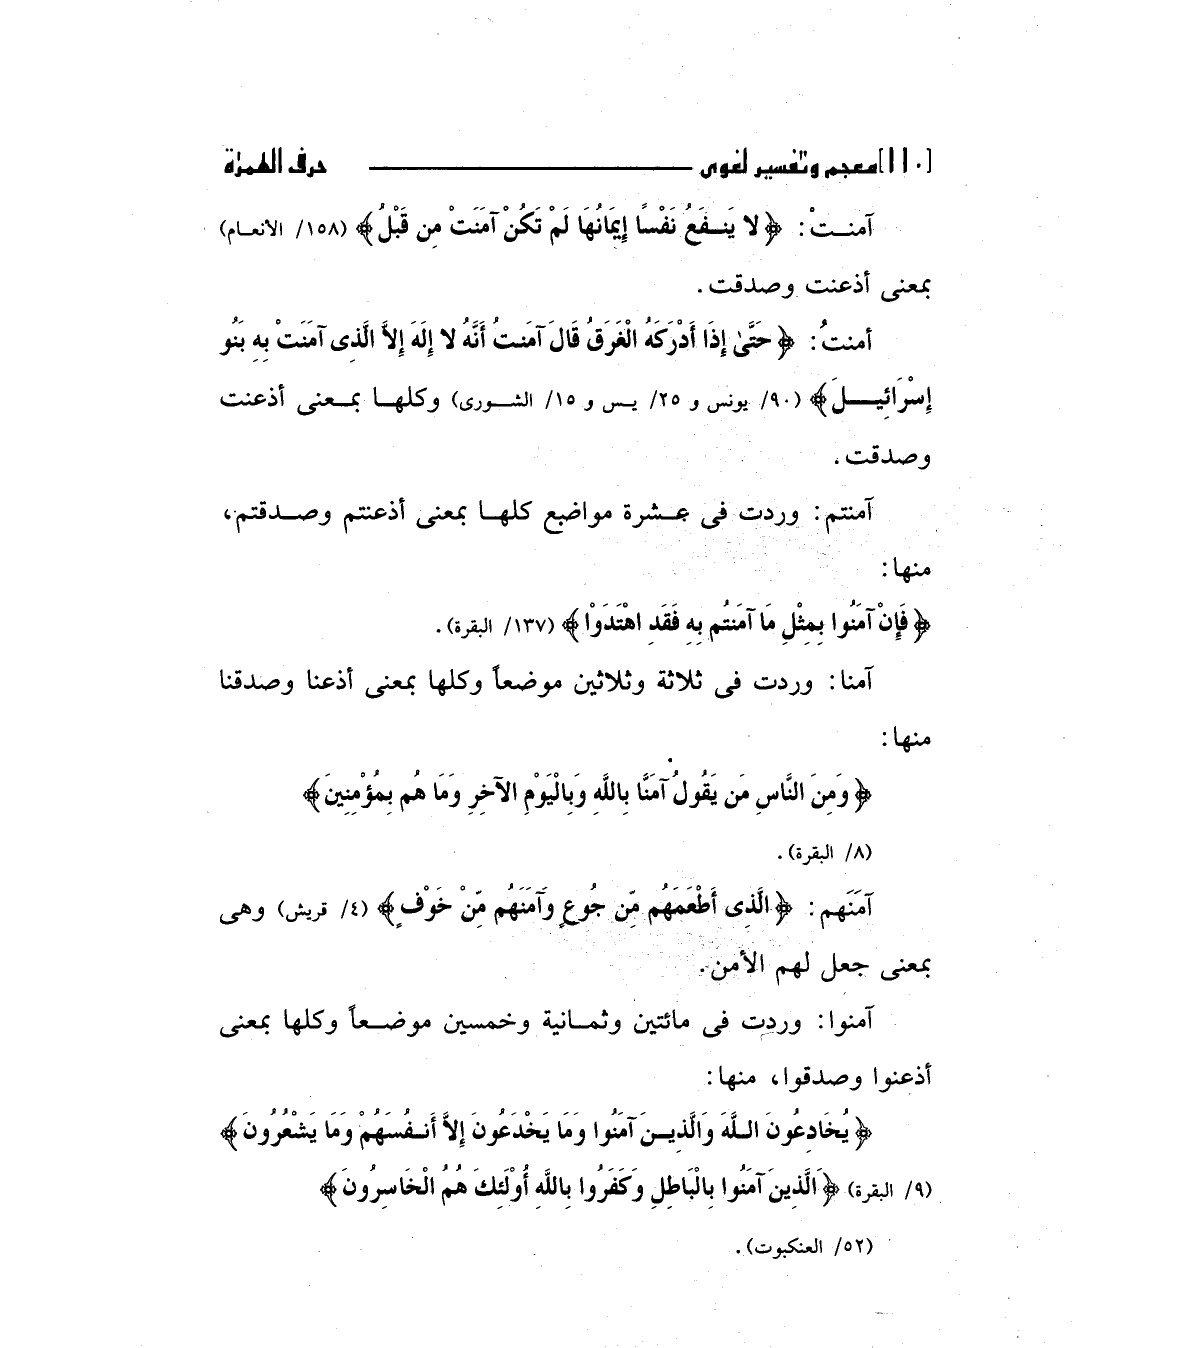 [١١٠] معجم وتفسير لغوى حرف الهمزة
آمنتْ: ﴿لا يَنفَعُ نَفْسًا إِيمَانُهَا لَمْ تَكُنْ آمَنَتْ مِن قَبْلُ﴾ (١٥٨/ الأنعام)
بمعنى أذعنت وصدقت.
أمنتُ: ﴿حَتَّىٰ إِذَا أَدْرَكَهُ الْغَرَقُ قَالَ آمَنتُ أَنَّهُ لا إِلَهَ إِلاَّ الَّذِى آمَنَتْ بِهِ بَنُو
إِسْرَائِيلَ﴾ (٩٠/ يونس و ٢٥/ يس و ١٥/ الشورى) وكلها بمعنى أذعنت
وصدقت.
آمنتم: وردت فى عشرة مواضع كلها بمعنى أذعنتم وصدقتم،
منها:
﴿فَإِنْ آمَنُوا بِمِثْلِ مَا آمَنتُم بِهِ فَقَدِ اهْتَدَوْا﴾ (١٣٧/ البقرة).
آمنا: وردت فى ثلاثة وثلاثين موضعاً وكلها بمعنى أذعنا وصدقنا
منها:
﴿وَمِنَ النَّاسِ مَن يَقُولُ آمَنَّا بِاللَّهِ وَبِالْيَوْمِ الآخِرِ وَمَا هُم بِمُؤْمِنِينَ﴾
(٨/ البقرة).
آمَنَهم: ﴿الَّذِى أَطْعَمَهُم مِّن جُوعٍ وَآمَنَهُم مِّنْ خَوْفٍ﴾ (٤/ قريش) وهى
بمعنى جعل لهم الأمن.
آمنوا: وردت فى مائتين وثمانية وخمسين موضعاً وكلها بمعنى
أذعنوا وصدقوا، منها:
﴿يُخَادِعُونَ اللَّهَ وَالَّذِينَ آمَنُوا وَمَا يَخْدَعُونَ إِلاَّ أَنفُسَهُمْ وَمَا يَشْعُرُونَ﴾
(٩/ البقرة) ﴿الَّذِينَ آمَنُوا بِالْبَاطِلِ وَكَفَرُوا بِاللَّهِ أُوْلَئِكَ هُمُ الْخَاسِرُونَ﴾
(٥٢/ العنكبوت).